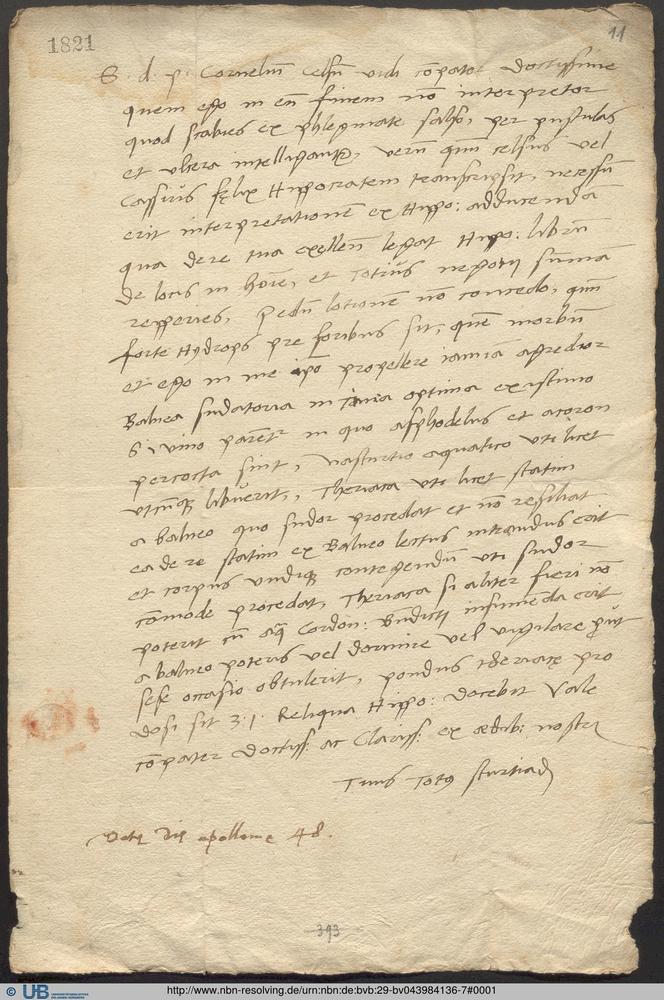 1821
11
S. d. p. Corneliū Celsū vidi cōpater doctissime
quem ego in eū finem nō interpretor
quod scabies ex phlegmate salso, per pustulas
et ulcera intelligantr, verū qm̄ celsus vel
Cassius fęlix Hippocratem transcripsit, necessū
erit interpretationē ex Hippo: adducendā
qua de re tua excellen̄ legat Hippo: librū
de locis in hoīe, et totius negotij sum̄ā
repperies, pedū lotionem nō concedo, qm̄
forte Hydrops pre foribus sit, quē morbū
et ego in me ipō propellere iamiā agredior
Balnea sudatoria in optima existimo
Si vino parētr in quo asphodelus et acoron
percocta sint, nasturtio aquatico uti licet
utcūqꝫ libuerit, Theriaca uti licet statim
a balneo quo sudor procedat et nō resiliat
ea de re statim ex Balneo lectus intrandus erit
et corpus undiqꝫ contegendū uti sudor
cōmode procedat, Theriaca si aliter fieri nō
poterit cū aq̄ Cardon: Bndicti insumenda erit
a balneo poteris vel dormire vel vigilare put
sese occasio obtulerit, pondus theriacę pro
dosi sit 3. 1. Reliqua Hippo: docebit Vale
cōpater Doctiss: ac Clariss: ex ædib: nostr
Tuus totq
apollonię 48.
393
UB
http://www.nbn-resolving.de/urn:nbn:de:bvb:29-bv043984136-7#0001